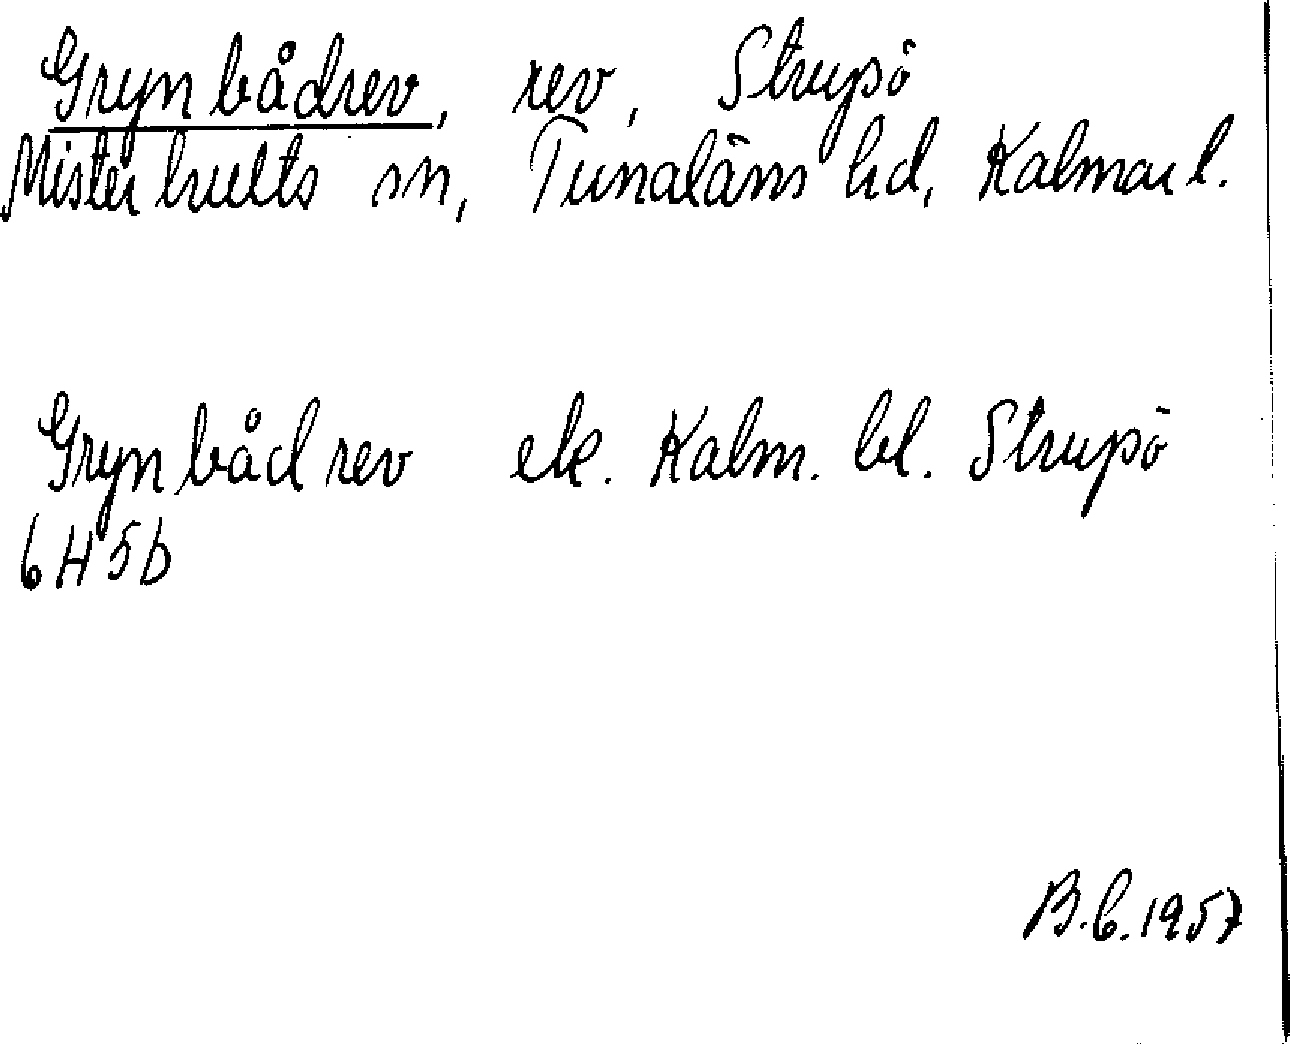 Grynbådrev, rev, Strupö
Misterhults sn, Tunaläns hd, Kalmar l.
Grynbådrev ek. Kalm. bl. Strupö
6H5b
B.C. 1957